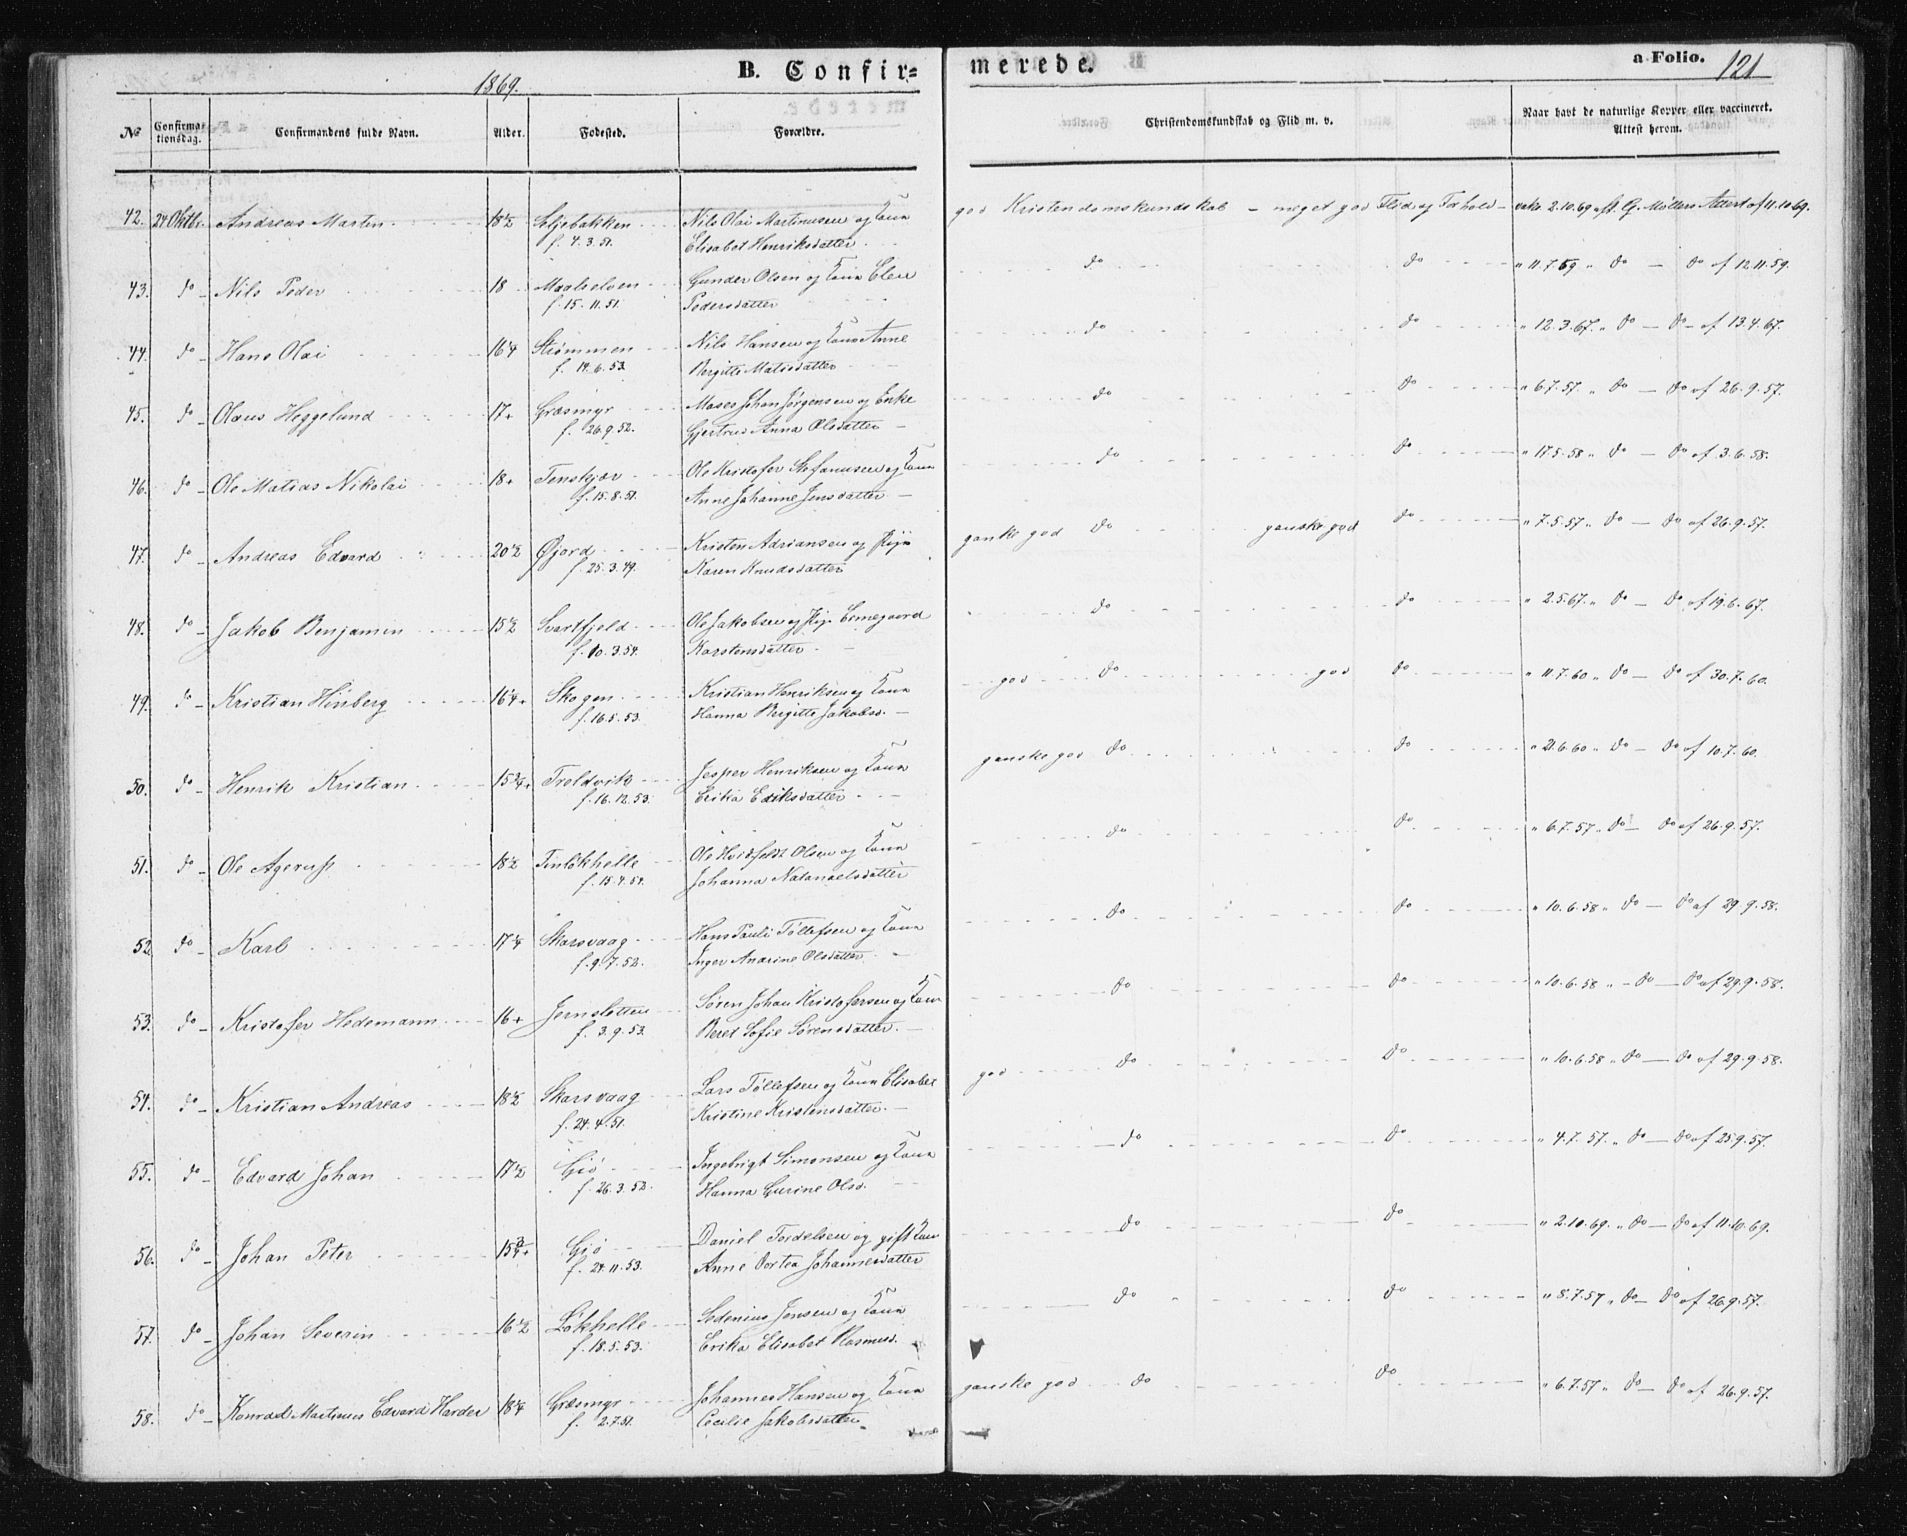 B. Confir-
merede.
a Folio. 121
1869.
№
Confirmationsdag.
Confirmandens fulde Navn.
Alder.
Fødested.
Forældre.
Christendomskundskab og Flid m. v.
Naar havt de naturlige Kopper eller vaccineret. Attest herom.
42. 24 Oktbr. Andreas Martin 18½ Nils Olai Martinusen og Kona god Kristendomskundskab - meget god Flid og Forhold - vakc. 2.10.69 G. Møllers Attest af 11.10.69.
f. 4.3.51. Elisabet Henriksdatter
43. do Nils Peder 18 Maalselven Gunder Olsen og Kona Elen do do " 11.7.59 " do - do af 12.11.59.
f. 15.11.51. Pedersdatter
44. do Hans Olai 16¼ Strømmen Nils Hansen og Kona Anne do do " 12.3.67 " do - do af 13.4.67.
f. 14.6.53. Birgitte Matisdatter
45. do Olaus Heggelund 17+ Græsmyr Moses Johan Jørgensen og Enke do do " 6.7.57. " do - do af 26.9.57.
f. 26.9.52. Gjertrud Anna Olsdatter
46. do Ole Matias Nikolai 18+ Tenskjær Ole Kristofer Stefanusen og Kona do do " 17.5.58 " do - do af 3.6.58.
f. 15.8.51. Anne Johanne Jensdatter
47. do Andreas Edvard 20½ Øjord Kristen Adriansen og Pige ganske god do ganske god do " 7.5.57 " do - do af 26.9.57.
f. 25.3.49. Karen Knudsdatter
48. do Jakob Benjamin 15½ Svartfjeld Ole Jakobsen og Pige Ermegaard do do " 2.5.67. " do - do af 19.6.67.
f. 10.3.54. Karstensdatter
49. do Kristian Hinberg 16¼+ Skogen Kristian Henriksen og Kona god do god do " 11.7.60 " do - do af 30.7.60.
f. 16.5.53. Hanna Birgitte Jakobsd.
50. do Henrik Kristian 15¾+ Troldvik Jesper Henriksen og Kona ganske god do do " 21.6.60 " do - do af 10.7.60.
f. 16.12.53. Erika Eriksdatter
51. do Ole Agerup 18½ Finløkhelle Ole Hvidfeldt Olsen og Kona do do " 6.7.57 " do - do af 26.9.57.
f. 15.4.51. Johanna Natanaelsdatter
52. do Karl 17¼ Skarsvaag Hans Pauli Tollefsen og Kona do do " 10.6.58 " do - do af 29.9.58.
f. 9.7.52. Inger Anarine Olsdatter
53. do Kristofer Hedemann 16+ Jernsletten Søren Johan Kristofersen og Kona do do " 10.6.58 " do - do af 29.9.58.
f. 3.9.53. Beret Sofie Sørensdatter
54. do Kristian Andreas 18½ Skarsvaag Lars Tollefsen og Kona Elisabet god do do " 10.6.58 " do - do af 29.9.58.
f. 24.4.51. Kristine Kristensdatter
55. do Edvard Johan 17½ Giø Ingebrigt Simonsen og Kona do do " 4.7.57. " do - do af 25.9.57.
f. 26.3.52. Hanna Gurine Olsd.
56. do Johan Peter 15¾+ Giø Daniel Tordelsen og gift Kone do do " 2.10.69. " do - do af 11.10.69.
f. 24.11.53. Anne Dortea Johannesdatter
57. do Johan Severin 16½ Løkhelle Sedenius Jensen og Kona do do " 8.7.57 " do - do af 26.9.57.
f. 18.5.53. Erika Elisabet Rasmusd.
58. do Konrad Martinus Edvard Harder 18¼ Græsmyr Johannes Hansen og Kona ganske god do do " 6.7.57 " do - do af 26.9.57.
f. 2.7.51. Cecilie Jakobsdatter